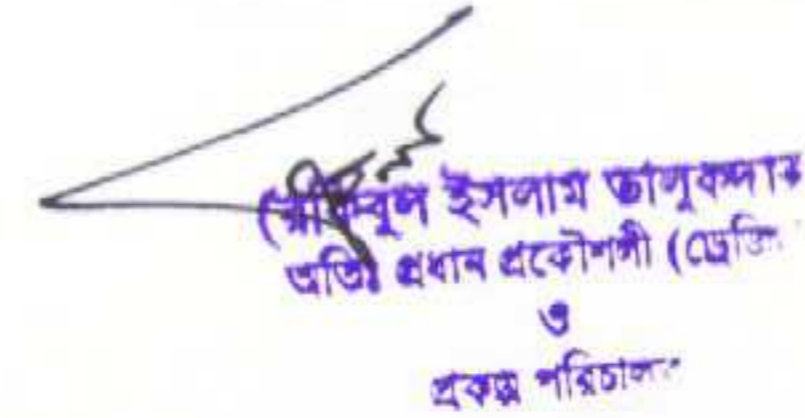 (রকিবুল ইসলাম তালুকদার
অতিঃ প্রধান প্রকৌশলী (ড্রেজিং
ও
প্রকল্প পরিচালক